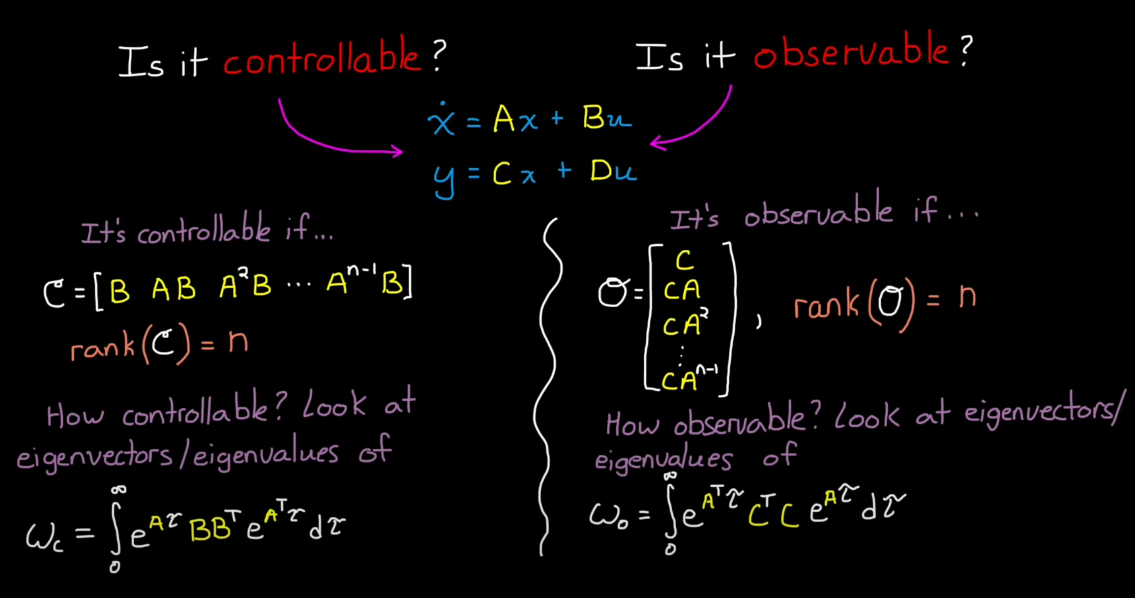 Is it controllable?
Is it observable?
ẋ = Ax + Bu
y = Cx + Du
It's controllable if...
𝒞 = [B AB A²B ⋯ Aⁿ⁻¹B]
rank(𝒞) = n
How controllable? Look at
eigenvectors/eigenvalues of
W_c = ∫₀^∞ e^{Aτ} BBᵀ e^{Aᵀτ} dτ
It's observable if...
𝒪 = [C
CA
CA²
⋮
CAⁿ⁻¹] , rank(𝒪) = n
How observable? Look at eigenvectors/
eigenvalues of
W_o = ∫₀^∞ e^{Aᵀτ} CᵀC e^{Aτ} dτ